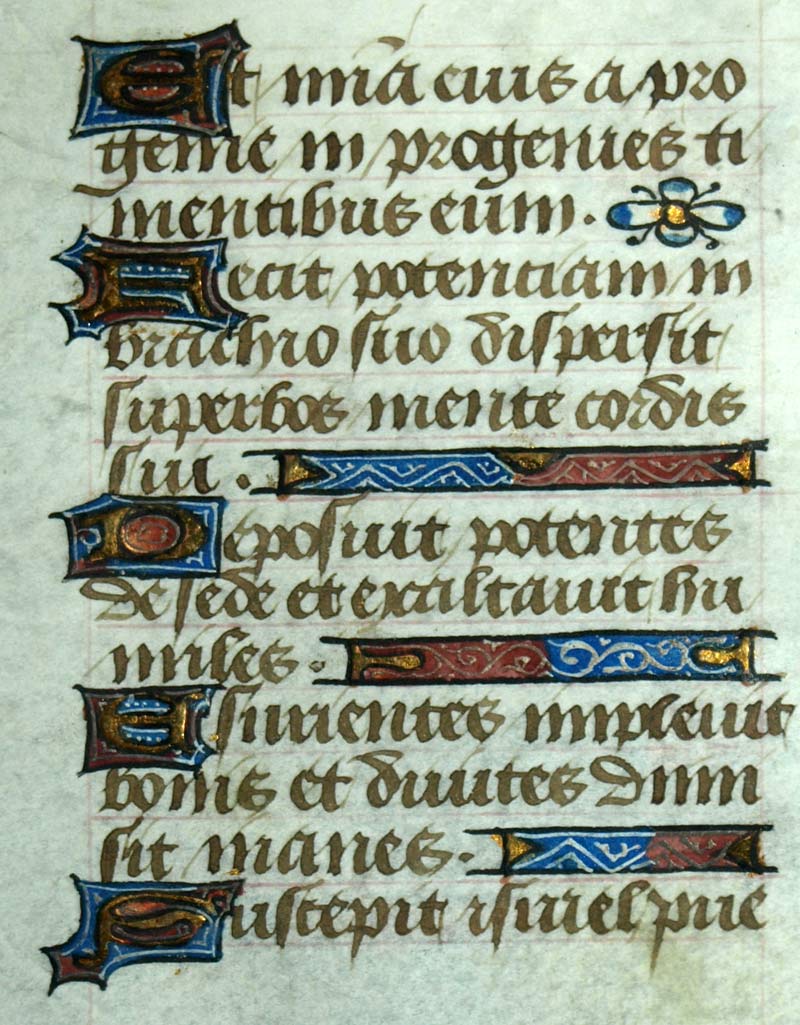 Et mīa eius a pro
genie in progenies ti
mentibus eūm.
Fecit potentiam in
brachio suo dispersit
superbos mente cordis
sui.
Deposuit potentes
de sede et exaltauit hu
miles.
Esurientes impleuit
bonis et diuites dimi
sit inanes.
Suscepit israel pue